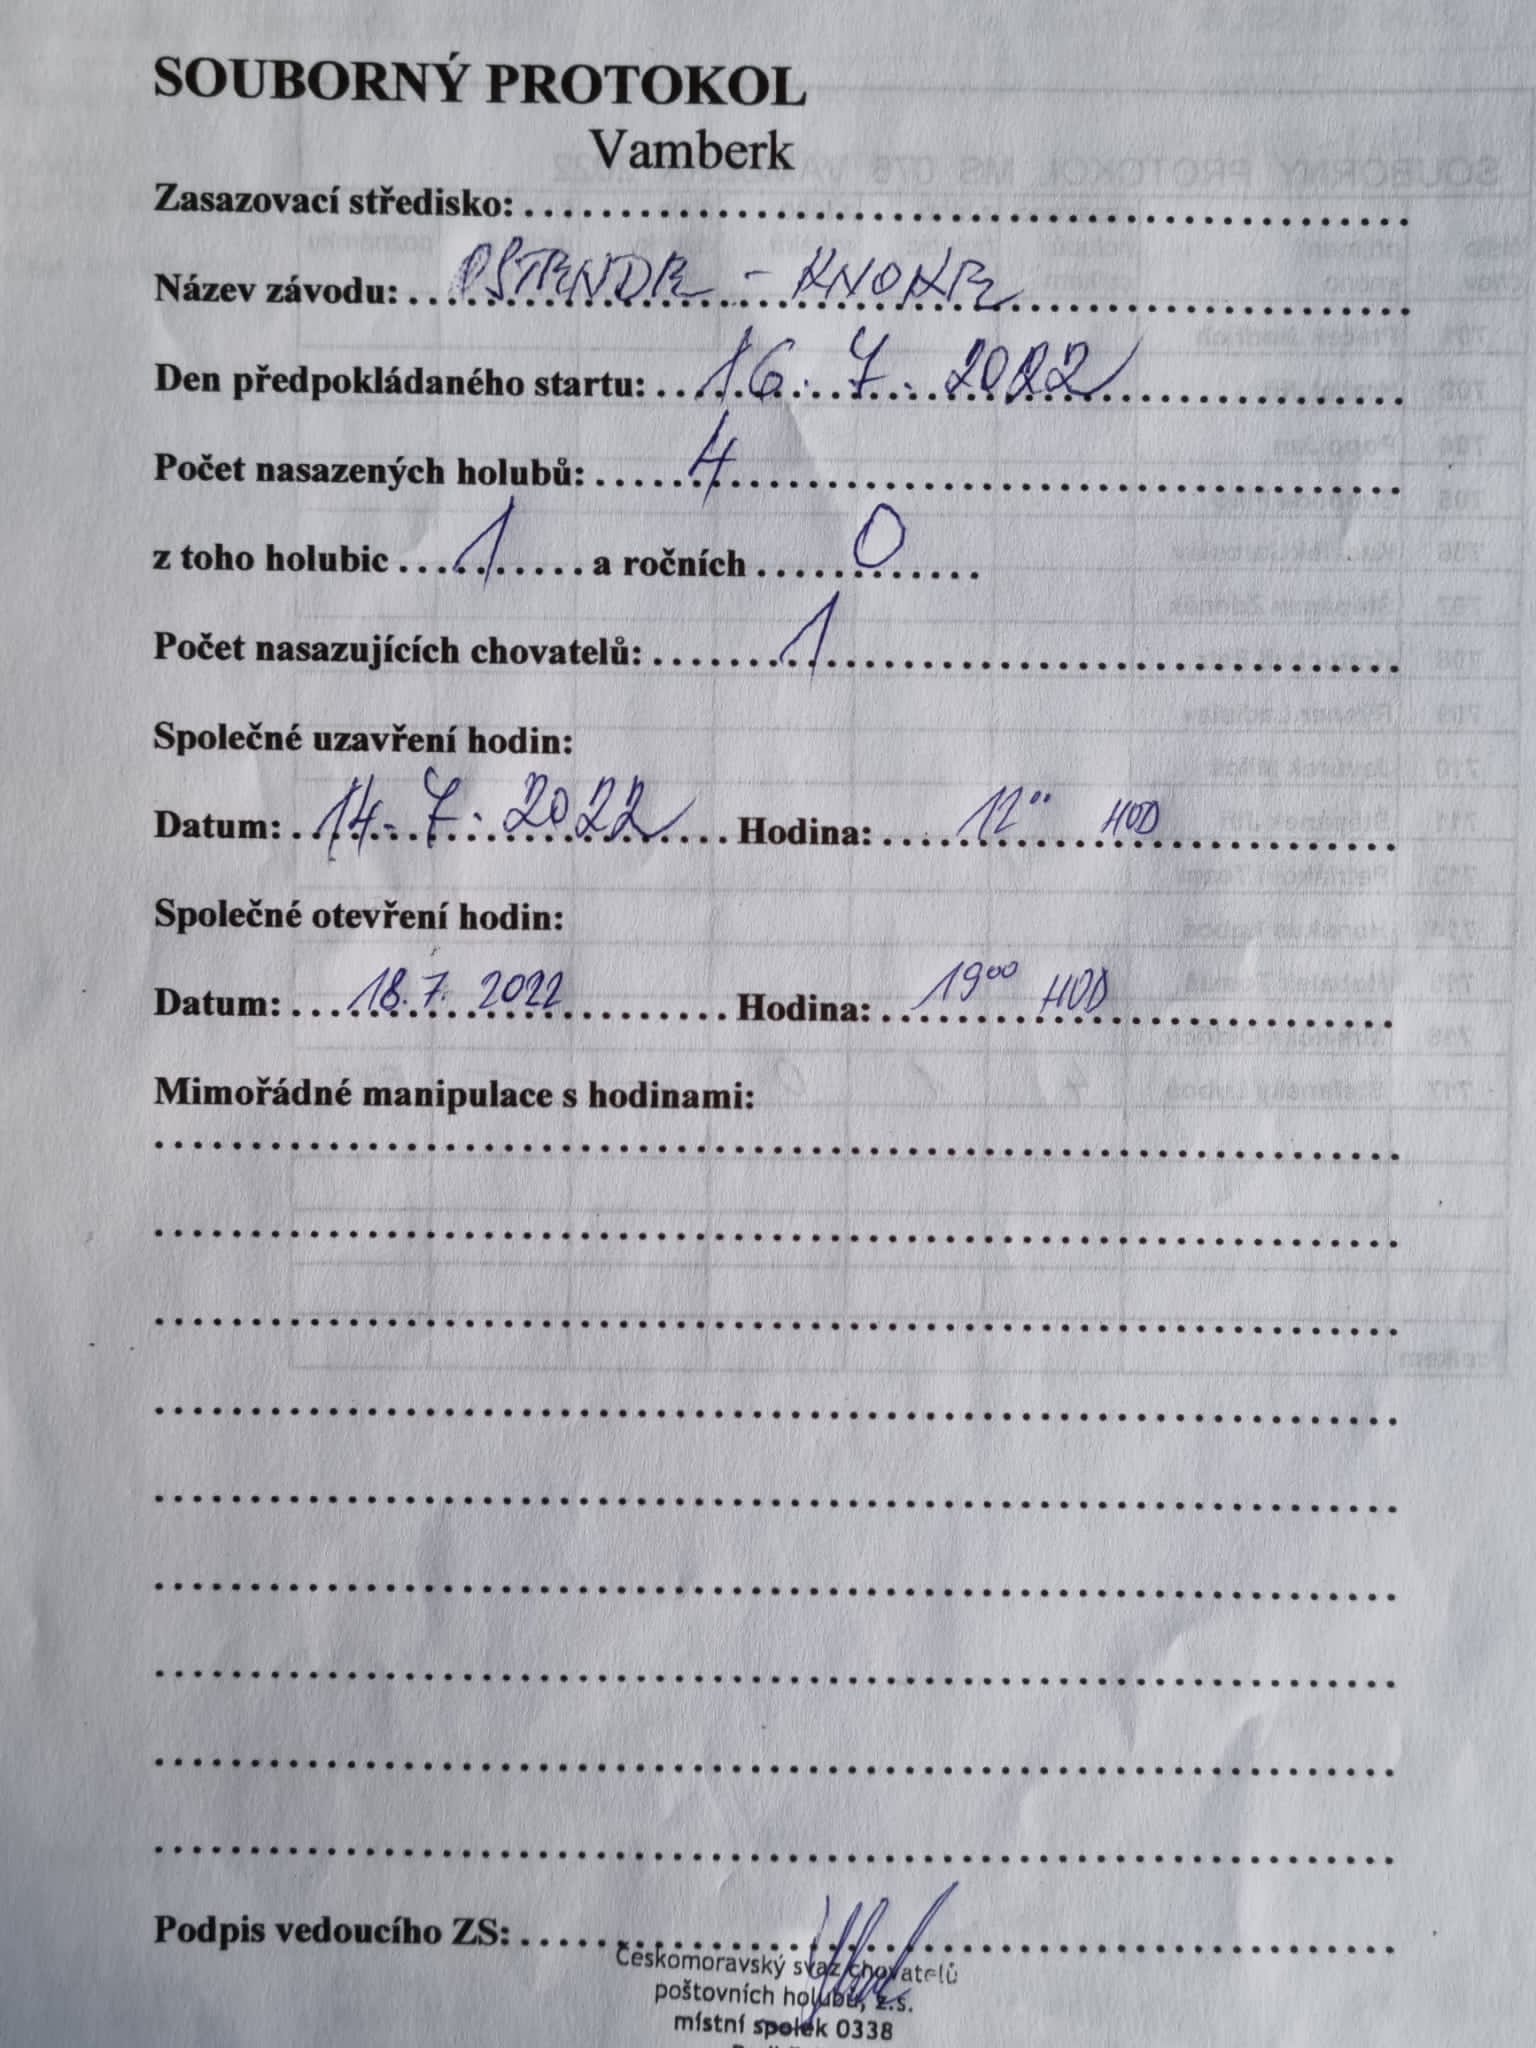 SOUBORNÝ PROTOKOL
Vamberk
Zasazovací středisko:
Název závodu: OSTENDE - KNOKE
Den předpokládaného startu: 16. 7. 2022
Počet nasazených holubů: 4
z toho holubic 1 a ročních 0
Počet nasazujících chovatelů: 1
Společné uzavření hodin:
Datum: 14. 7. 2022 Hodina: 12 00 HOD
Společné otevření hodin:
Datum: 18. 7. 2022 Hodina: 19 00 HOD
Mimořádné manipulace s hodinami:
Podpis vedoucího ZS:
Českomoravský svaz chovatelů
poštovních holubů, z.s.
místní spolek 0338